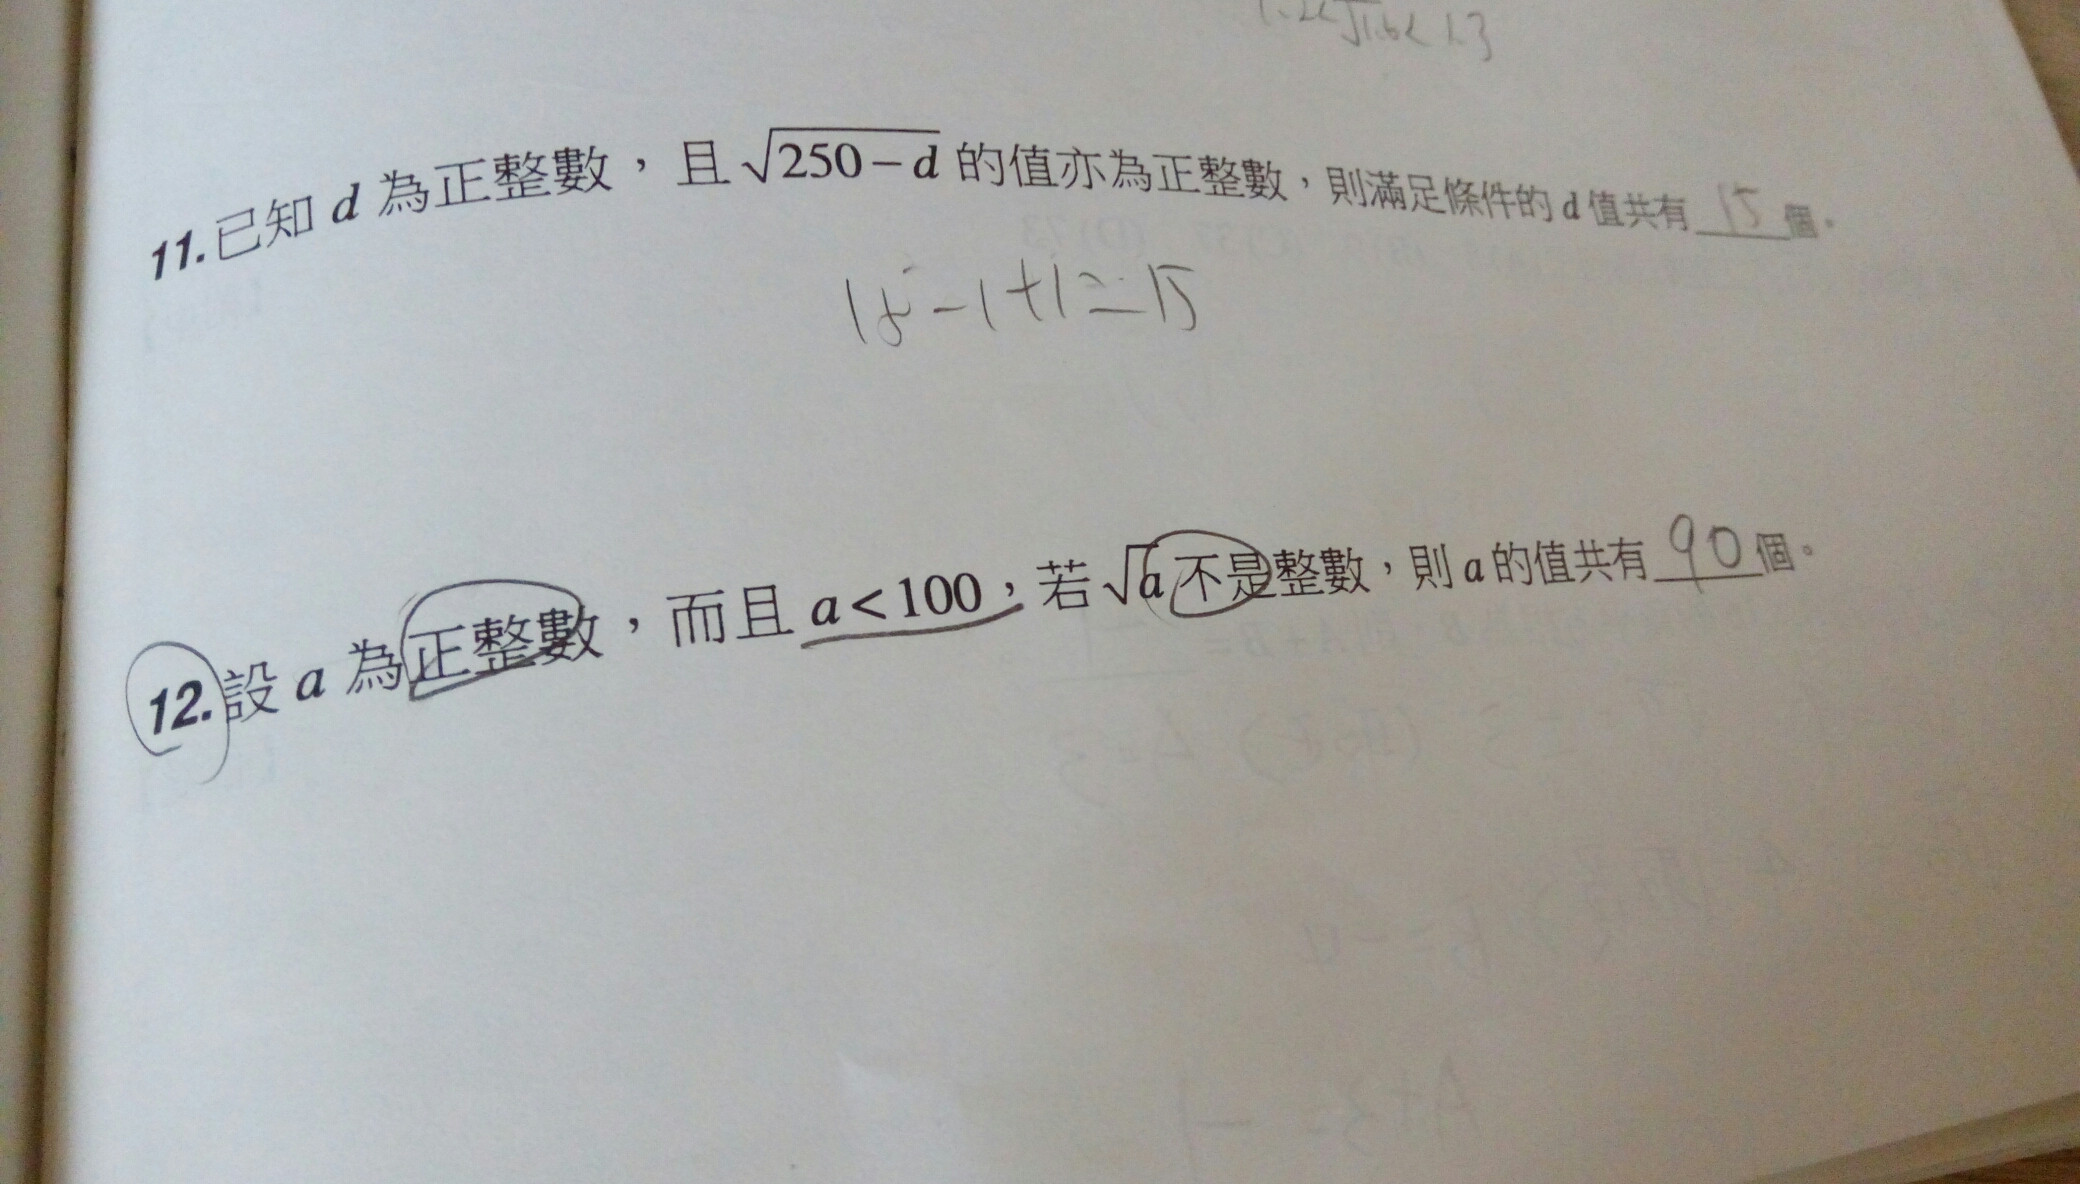 11.已知 d 為正整數,且 √250-d 的值亦為正整數,則滿足條件的 d 值共有 15 個。
15-1+1=15
12.設 a 為正整數,而且 a<100,若 √a 不是整數,則 a 的值共有 90 個。